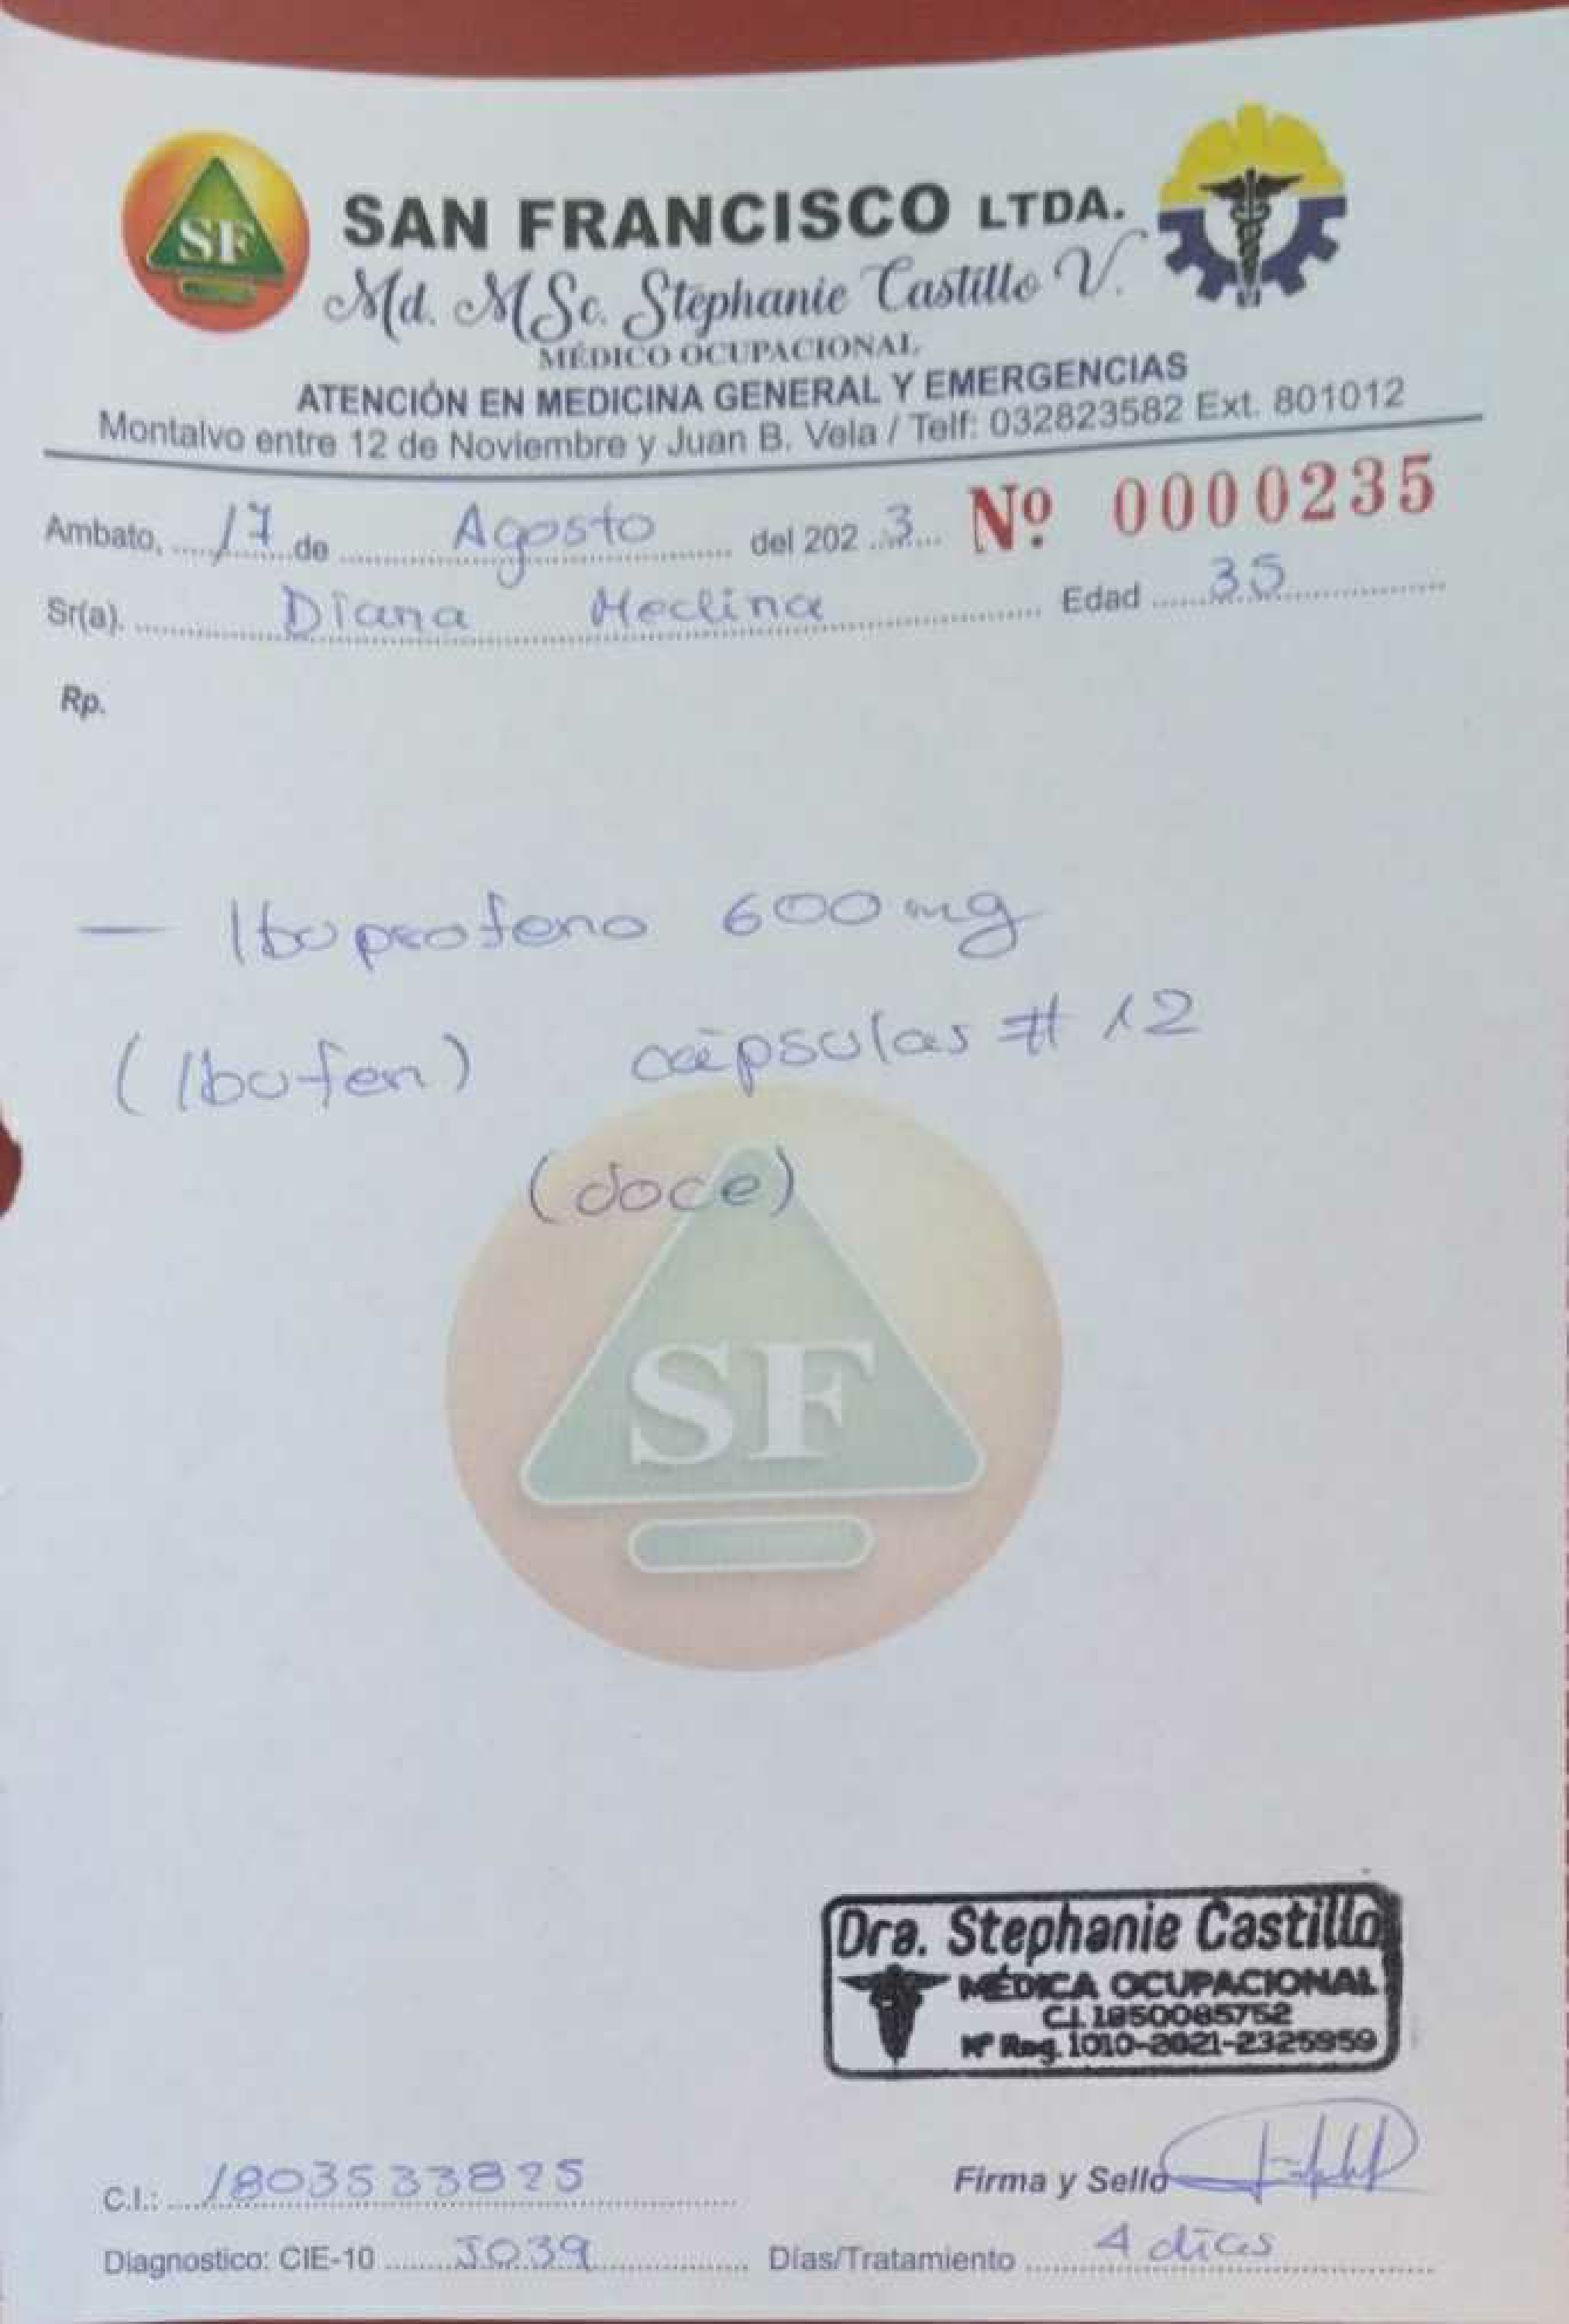 SF
SAN FRANCISCO LTDA.
Md. MSc. Stephanie Castillo V.
MÉDICO OCUPACIONAL
ATENCIÓN EN MEDICINA GENERAL Y EMERGENCIAS
Montalvo entre 12 de Noviembre y Juan B. Vela / Telf: 032823582 Ext. 801012
Ambato, 17 de Agosto del 2023 Nº 0000235
Sr(a). Diana Medina Edad 35
Rp.
— Ibuprofeno 600 mg
(Ibufen) cápsulas # 12
(doce)
SF
Dra. Stephanie Castillo
MÉDICA OCUPACIONAL
C.I. 1850085752
Nº Reg. 1010-2021-2325959
C.I.: 1803533825 Firma y Sello
Diagnostico: CIE-10 J039 Días/Tratamiento 4 días